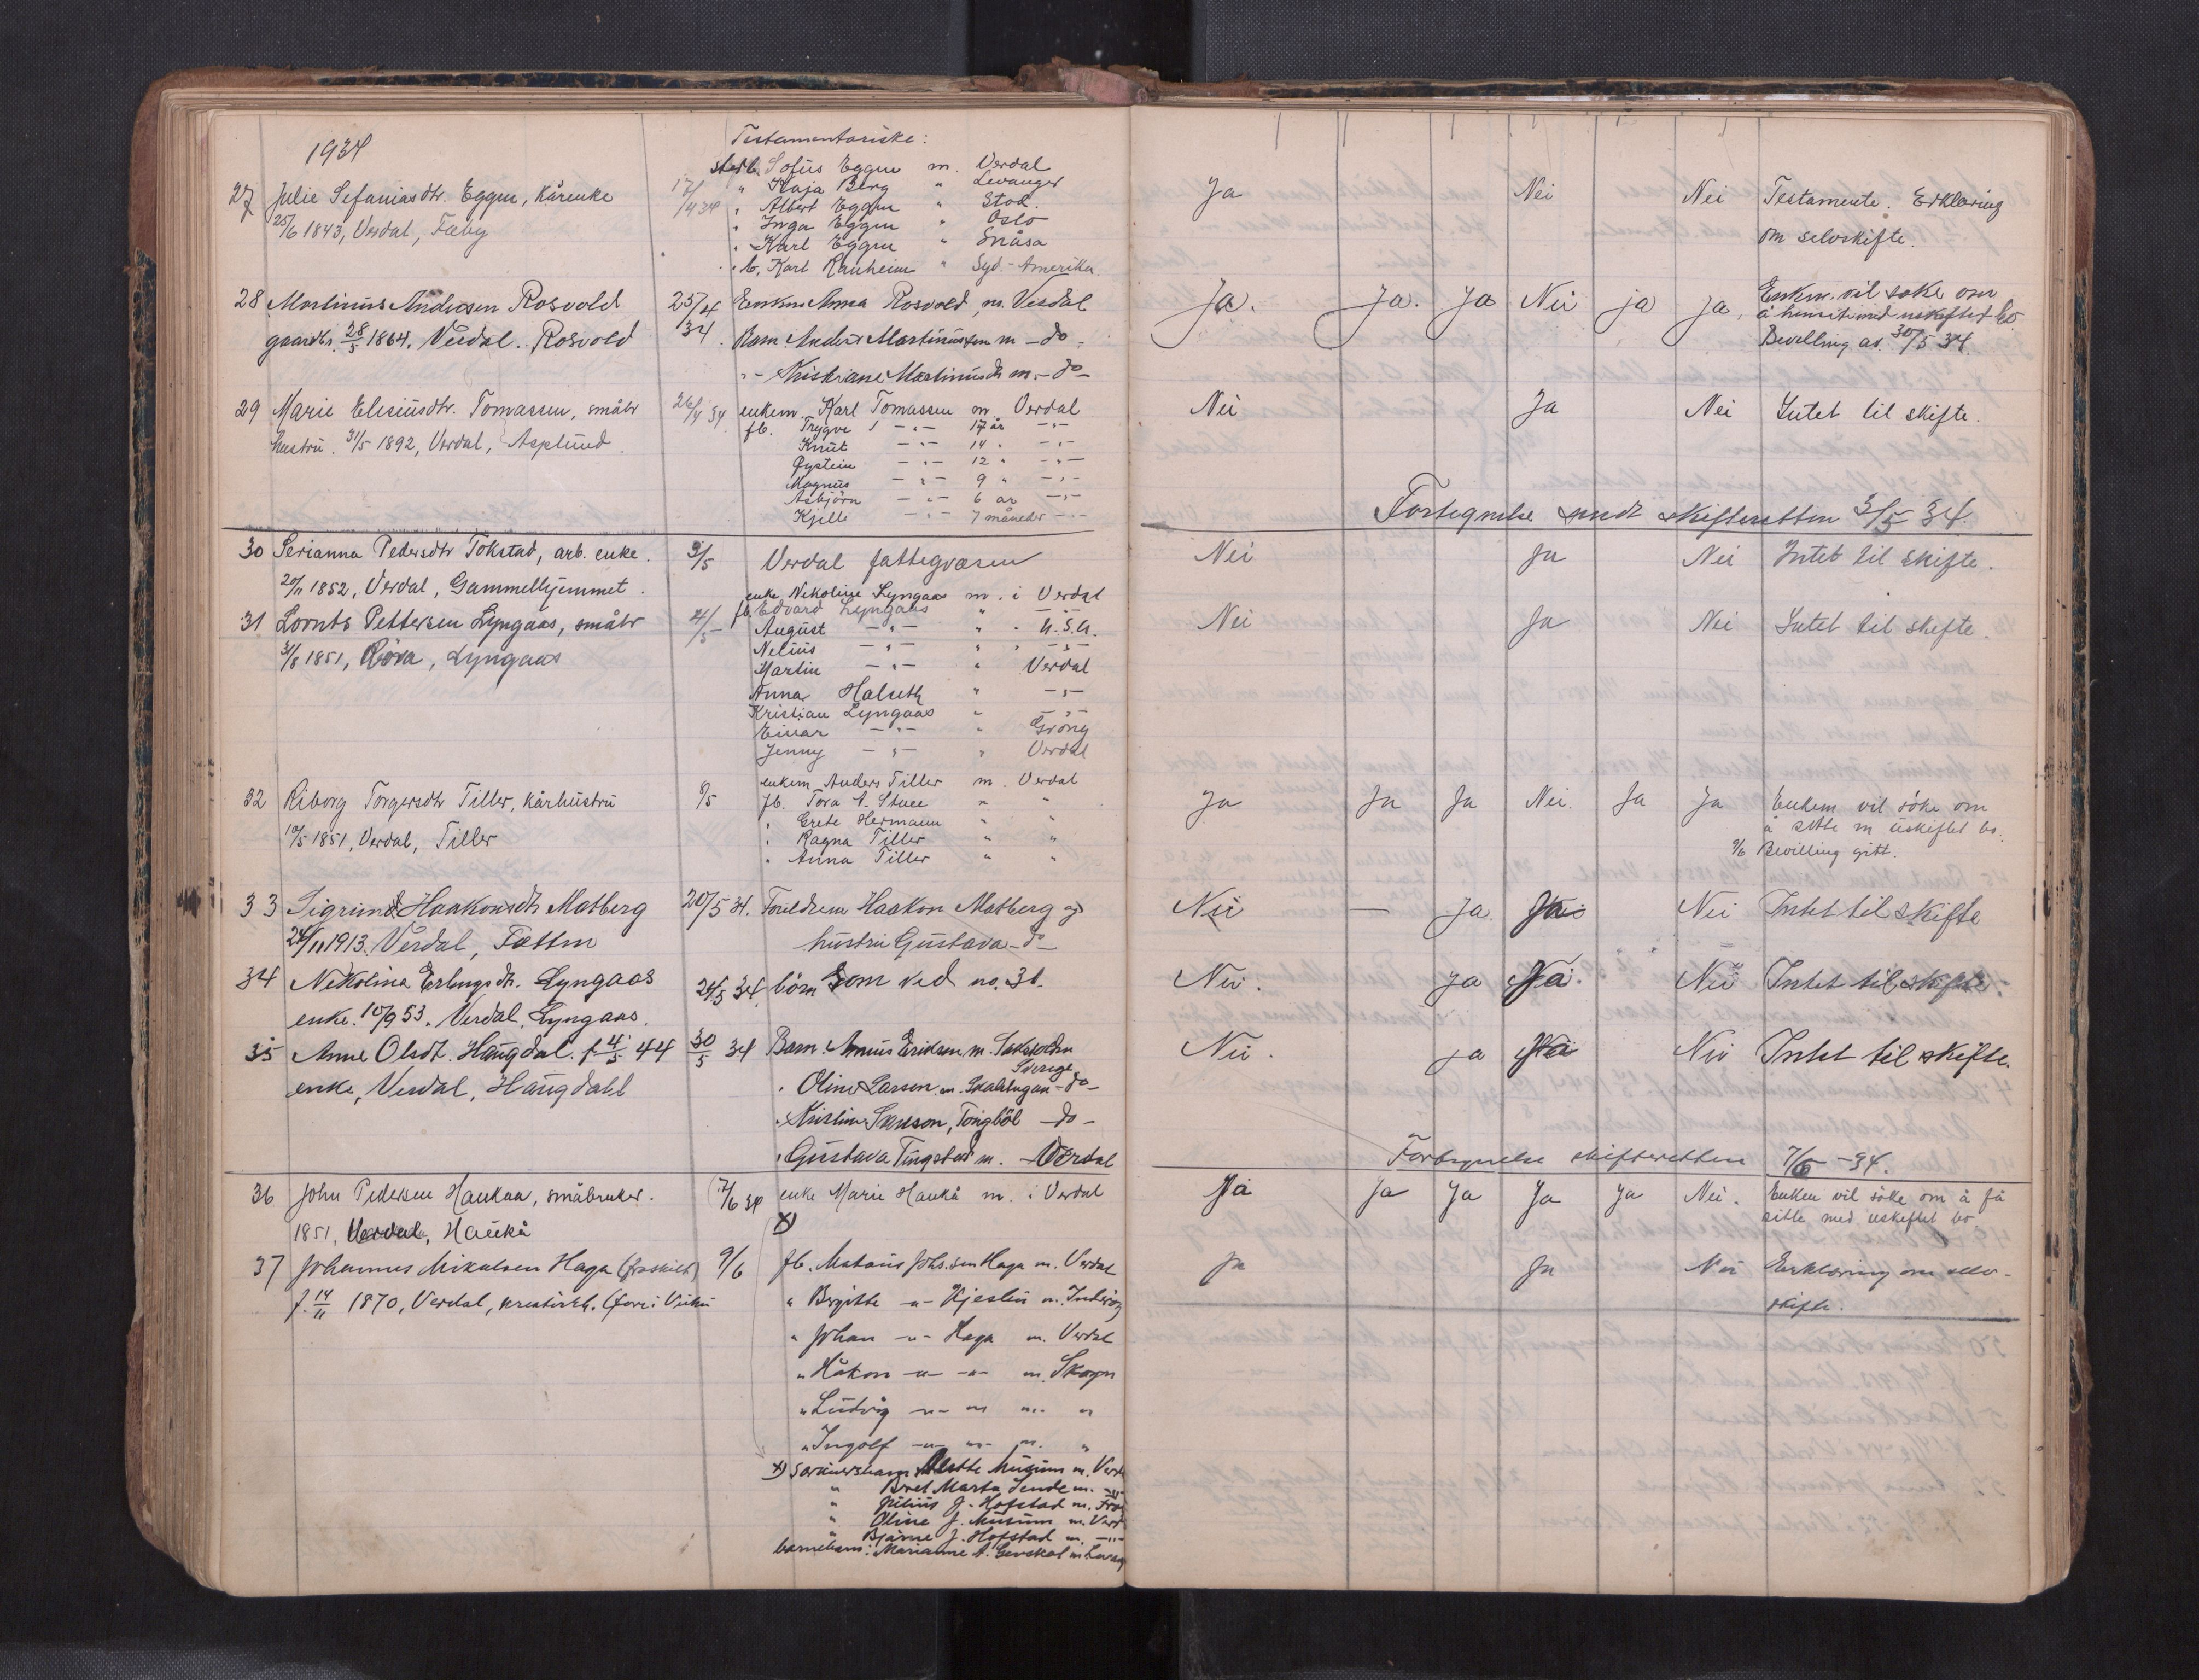 1934
Testamentariske:
Sofus Eggen m. Verdal
27 Julie Sefaniasdtr. Eggen, kårenke 17/4 34 " Kaja Berg " Levanger Ja Nei Nei Testamente. Erklæring
25/6 1843, Verdal, Fæby " Albert Eggen " Stod. om selvskifte.
" Inga Eggen " Oslo
" Karl Eggen " Snåsa
" b. Karl Ranheim " Syd-Amerika
28 Martinus Andersen Rosvold 25/4 34 Enkem Anna Rosvold, m. Verdal Ja. Ja. Ja Nei ja ja, Enkem. vil søke om
gaardbr. 28/5 1864. Verdal. Rosvold Barn: Anders Martinussen m - do - å hensitte med uskiftet bo.
" - Kristiane Martinusdtr m. - do - Bevilling av 30/5 34.
29 Marie Elisiusdtr. Tomassen, småbr 26/4 34 enkem. Karl Tomassen m. Verdal Nei Ja Nei Intet til skifte.
hustru. 31/5 1892, Verdal, Asplund. fb. Trygve - " - 17 år - " -
Knut - " - 14 " - " -
Øystein - " - 12 " - " -
Magnus - " - 9 " - " -
Asbjörn - " - 6 år - " -
Kjell - " - 7 måneder - " -
Fortegnelse sendt skifteretten 3/5 34.
30 Serianna Pedersdtr Tokstad, arb. enke. 3/5 Verdal fattegvæsen Nei Ja Nei Intet til skifte.
20/11 1852, Verdal, Gammelhjemmet.
enke Nekoline Lyngaas m. i Verdal
31 Lornts Pettersen Lyngaas, småbr 4/5 fb. Edvard Lyngaas " - " - Nei Ja Nei Intet til skifte.
31/8 1851, Röra, Lyngaas August - " - " " U.S.A.
Nelius - " - " " - " -
Martin - " - " Verdal
Anna Halseth " - " -
Kristian Lyngaas " - " -
Einar - " - " Grong
Jenny - " - " Verdal
32 Riborg Torgersdtr Tiller, kårhustru 8/5 enkem Anders Tiller m. Verdal Ja Ja Ja Nei. Ja Ja Enkem vil söke om
10/5 1851, Verdal, Tiller fb. Tora A. Stuee " " å sitte m uskiftet bo.
" Grete Hermann " " 9/6 Bevilling gitt.
" Ragna Tiller " "
" Anna Tiller " "
33 Sigrund Haakonsdtr Matberg 20/5 34. Foreldrene Haakon Matberg og Nei — ja Ja Nei Intet til skifte
24/11 1913. Verdal, Fætten hustru Gustava - do -
34 Nekolina Erlingsdtr. Lyngaas 24/5 34. börn som ved no. 31. Nei. ja Ja. Nei Intet til skifte.
enke. 10/9 53. Verdal, Lyngaas.
35 Anne Olsdt. Haugdal. f. 4/5 44 30/5 34 Barn: Anneus Eriksen, m. Nei. ja Ja Nei Intet til skifte.
Sverige
enke, Verdal, Haugdahl " Oline Larson. m. Skalstugan - do -
" Kristine, Tongböl - do -
" Gustava Tingstad m. - Verdal
Fortegnelse skifteretten 7/6 - 34.
36 John Pedersen Haukaa, småbruker. 7/6 34 enke Marie Haukå m. i Verdal Ja Ja Ja Ja Ja Nei. Enken vil söke om å få
1851, Verdal, Haukå x) sitte med uskiftet bo.
37 Johannes Mikalsen Haga (fraskilt) 9/6 fb. Mataus Johs.sen Haga m. Verdal Ja Ja Nei Erklæring om selv-
f. 14/11 1870, Verdal, (forr: " Birgitte - " - Kjeslin m. Inderöy skifte.
" Johan - " - Haga m. Verdal
" Håkon - " - - " - m. Skogn
" Ludvig - " - " m. "
" Ingolf - " - " - m. "
x) Særkuersbarn Musum m. Verd
" Beret Marta Sende m. - " -
" Julius J. Hofstad m.
" Oline J. Musum m. Verd
" Bjarne J. Hofstad m. - " -
barnebarn: Marianne A.